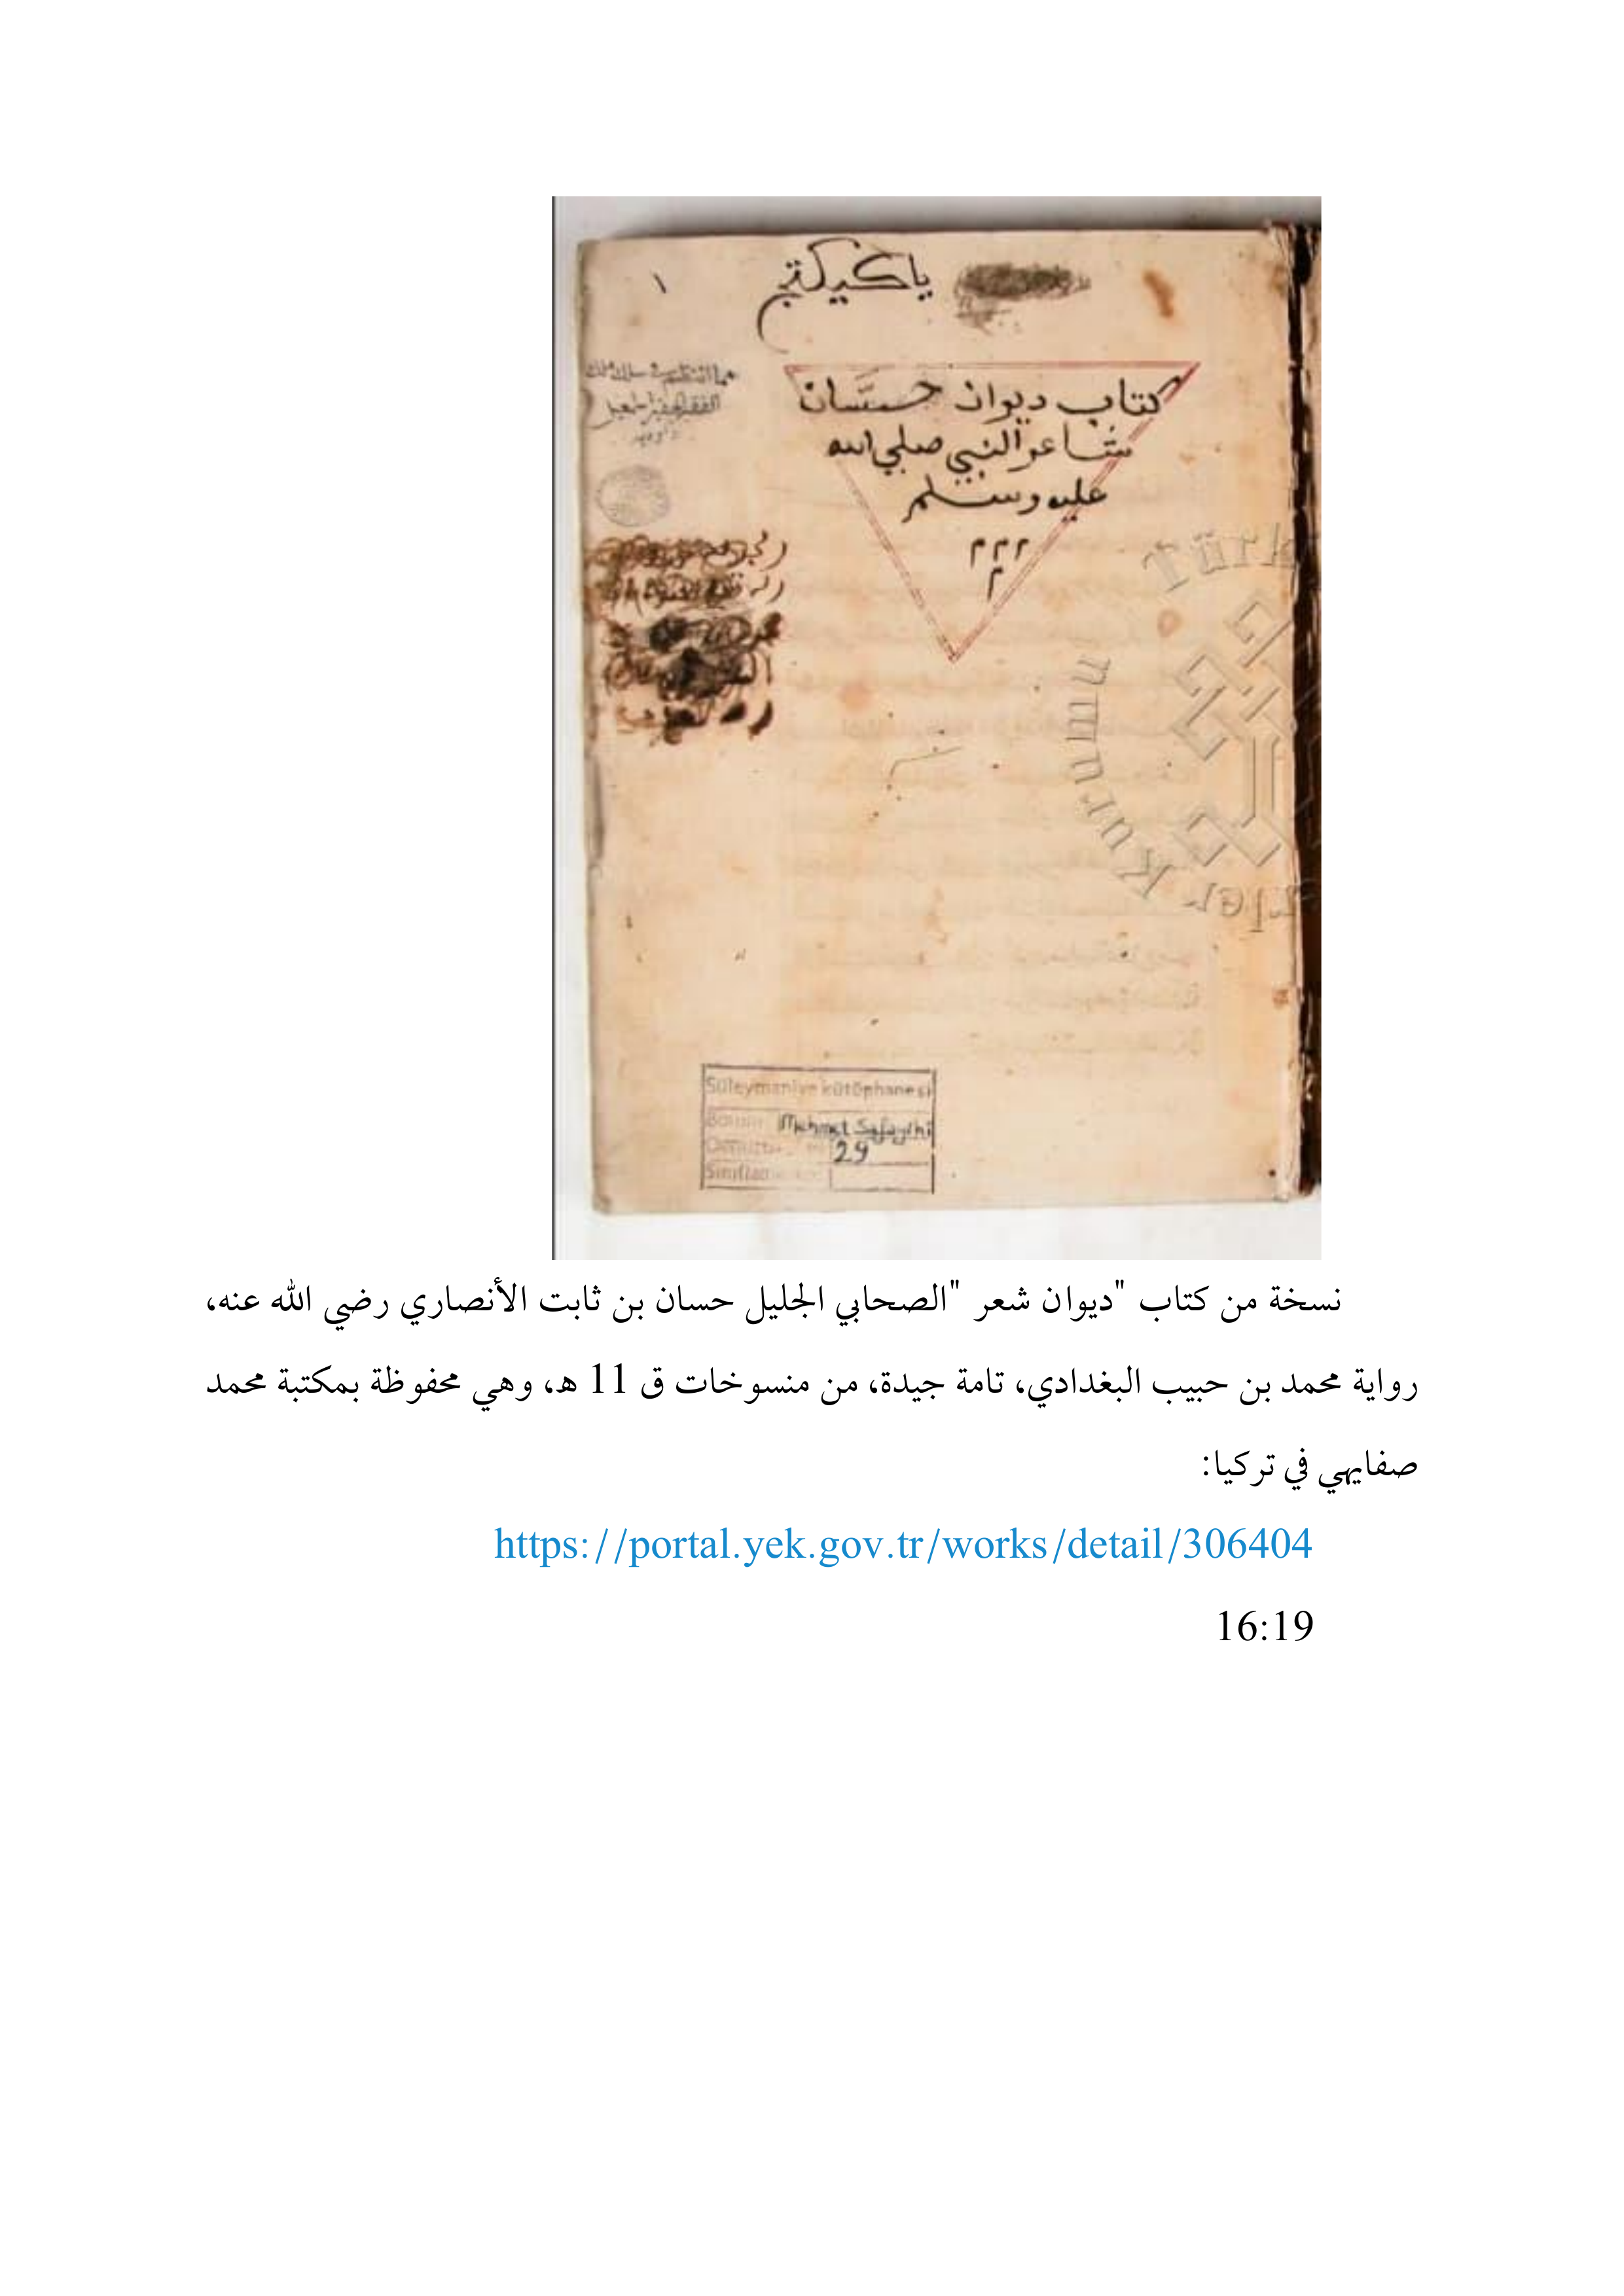 ١
يا كيكتج
كتاب ديوان حسَّان
شاعر النبي صلى الله
عليه وسلم
م م م
م
مما انتظم في سلك ملك
الفقير الحقير
Süleymaniye kütüphanesi
Mehmet Safayihi
29
نسخة من كتاب "ديوان شعر "الصحابي الجليل حسان بن ثابت الأنصاري رضي الله عنه،
رواية محمد بن حبيب البغدادي، تامة جيدة، من منسوخات ق 11 هـ، وهي محفوظة بمكتبة محمد
صفايهي في تركيا:
https://portal.yek.gov.tr/works/detail/306404
16:19